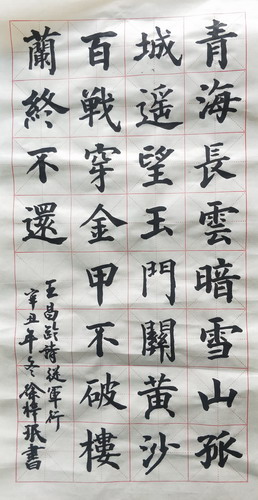 青海長雲暗雪山孤
城遥望玉門關黃沙
百戰穿金甲不破樓
蘭終不還
王昌齡詩從軍行
辛丑年冬徐梓珉書